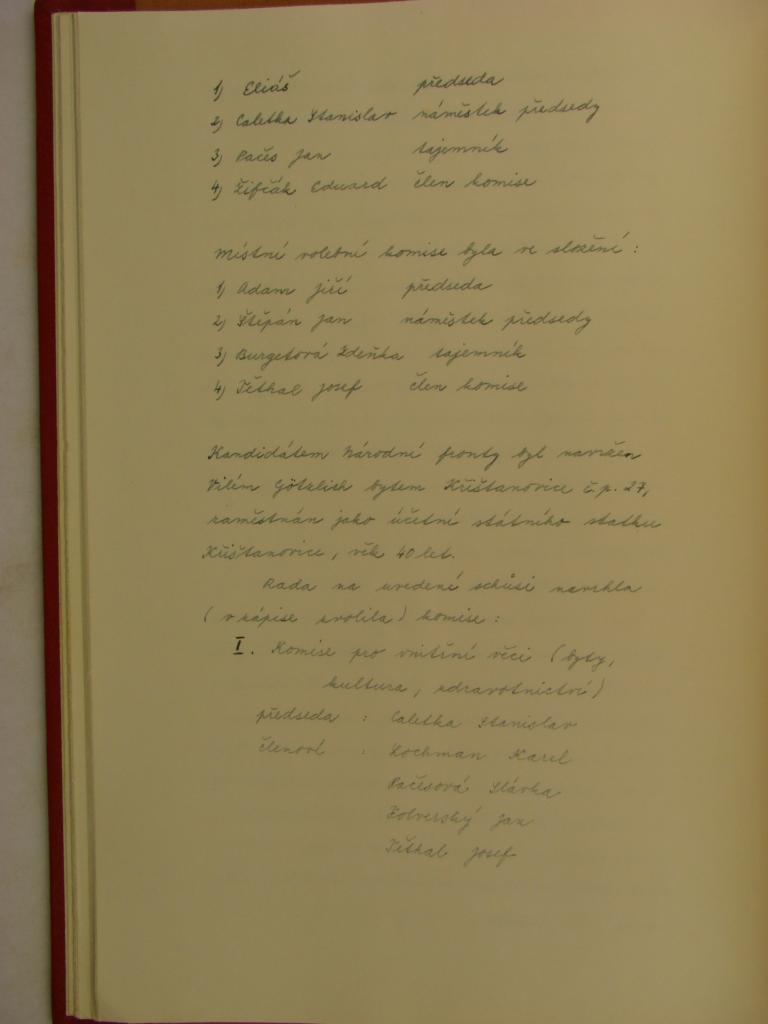 1) Eliáš předseda
2) Caletka Stanislav náměstek předsedy
3) Pačes Jan tajemník
4) Žifčák Eduard člen komise
Místní volební komise byla ve složení:
1) Adam Jiří předseda
2) Štěpán Jan náměstek předsedy
3) Burgetová Zdeňka tajemník
4) Těthal Josef člen komise
Kandidátem Národní fronty byl navržen
Vilém Götzlich bytem Křišťanovice č.p. 27,
zaměstnán jako účetní státního statku
Křišťanovice, věk 40 let.
Rada na uvedené schůsi navrhla
(v zápise zvolila) komise:
I. Komise pro vnitřní věci (byty,
kultura, zdravotnictví)
předseda : Caletka Stanislav
členové : Lochman Karel
Pačesová Slávka
Jan
Těthal Josef